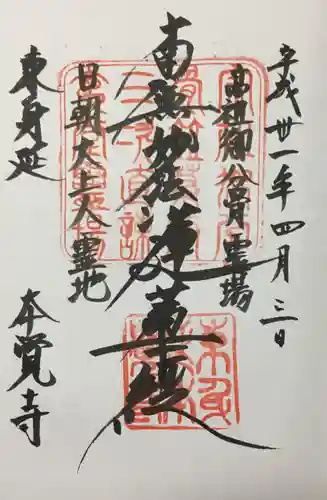 平成卅一年四月三日
高祖御分骨霊場
南無妙法蓮華経
日朝大上人霊地
東身延
本覺寺